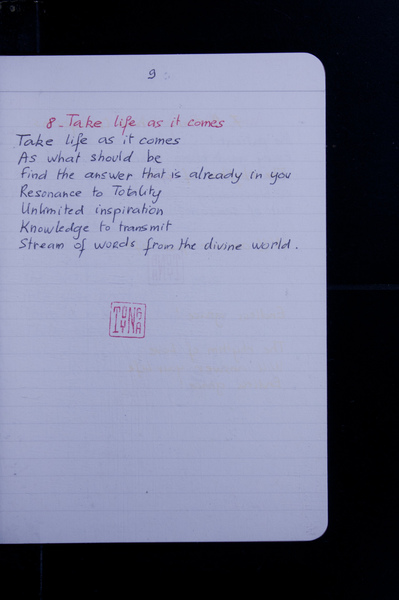 9
8-Take life as it comes
Take life as it comes
As what should be
Find the answer that is already in you
Resonance to Totality
Unlimited inspiration
Knowledge to transmit
Stream of words from the divine world.